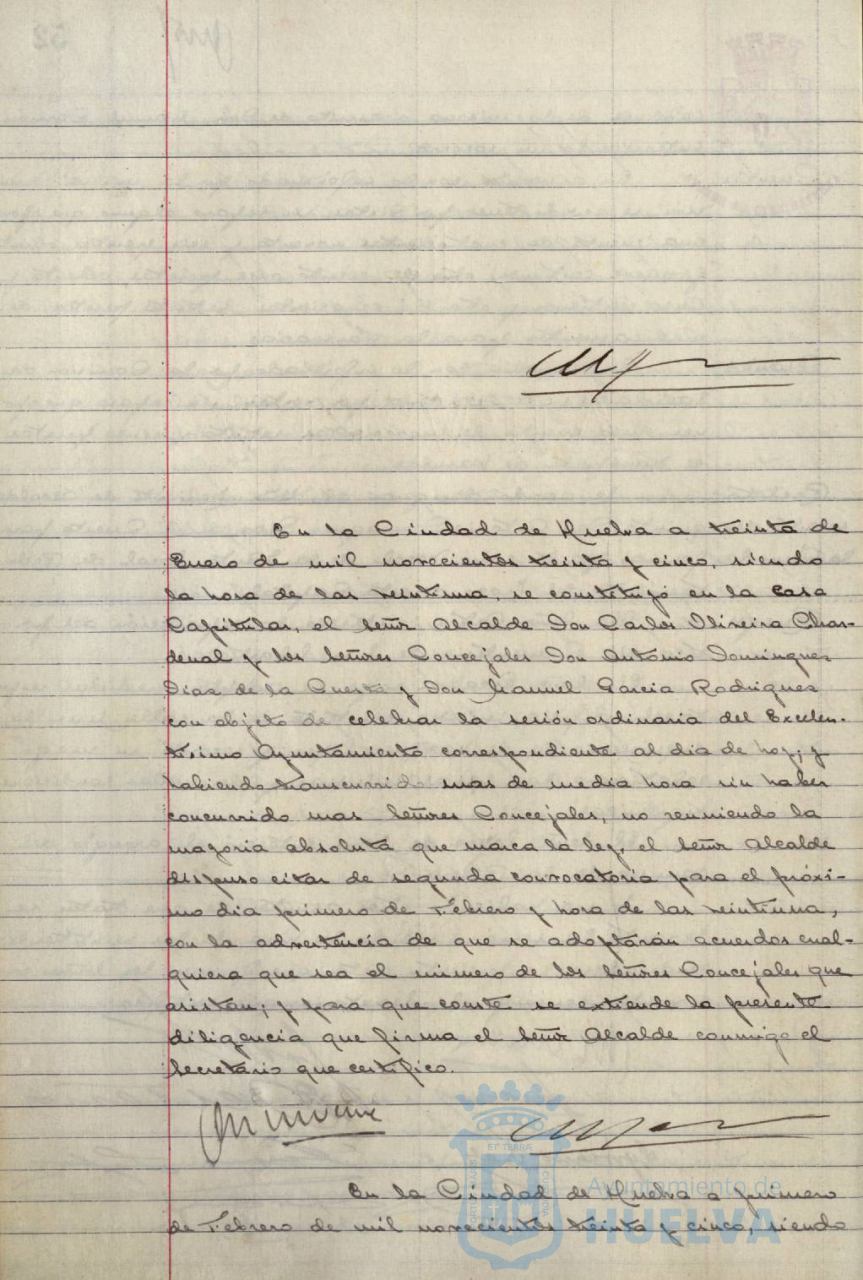 En la Ciudad de Huelva a treinta de
Enero de mil novecientos treinta y cinco, siendo
la hora de las veintiuna, se constituyó en la Casa
Capitular, el Señor Alcalde Don Carlos Oliveira Char-
denal y los Señores Concejales Don Antonio Domínguez
Díaz de la Cuesta y Don Manuel García Rodríguez
con objeto de celebrar la sesión ordinaria del Excelen-
tísimo Ayuntamiento correspondiente al día de hoy; y
habiendo transcurrido mas de media hora sin haber
concurrido mas Señores Concejales, no reuniendo la
mayoría absoluta que marca la ley, el Señor Alcalde
dispuso citar de segunda convocatoria para el próxi-
mo día primero de Febrero y hora de las veintiuna,
con la advertencia de que se adoptarán acuerdos cual-
quiera que sea el número de los Señores Concejales que
asistan; y para que conste se extiende la presente
diligencia que firma el Señor Alcalde conmigo el
Secretario que certifico.
En la Ciudad de Huelva a primero
de Febrero de mil novecientos treinta y cinco, siendo
Ayuntamiento de
HUELVA